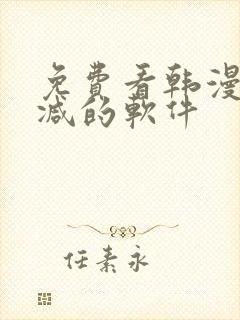 免費看韩漫
减的軟件
任素永